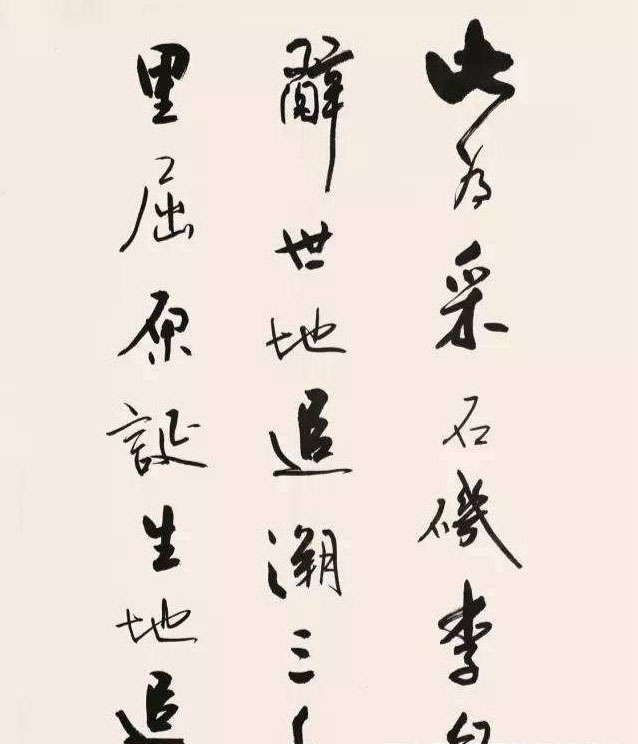 此为采石磯李
辭世地追溯三
里屈原誕生地追